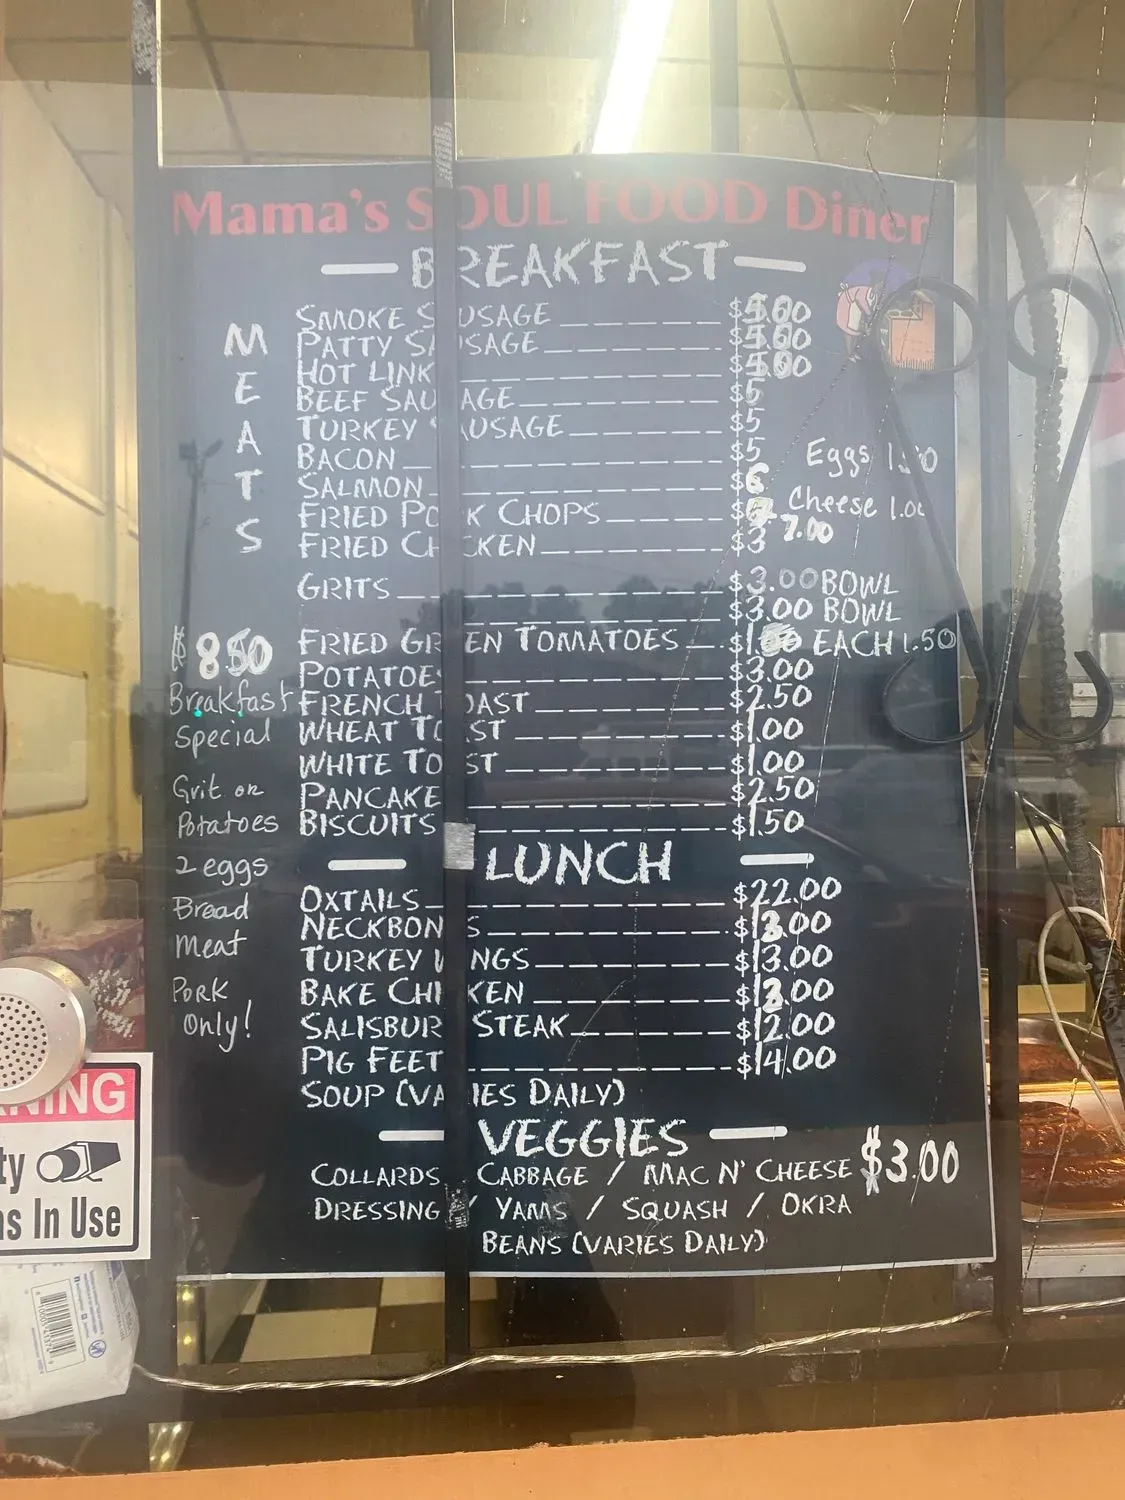 Mama's SOUL FOOD Diner
BREAKFAST
MEATS
SMOKE SAUSAGE $5.00
PATTY SAUSAGE $5.00
HOT LINK $5.00
BEEF SAUSAGE $5
TURKEY SAUSAGE $5
BACON $5
Eggs 1.50
SALMON $6
Cheese 1.00
FRIED PORK CHOPS 7.00
FRIED CHICKEN $3
GRITS $3.00 BOWL
$3.00 BOWL
FRIED GREEN TOMATOES $1. EACH 1.50
POTATOES $3.00
FRENCH TOAST $2.50
WHEAT TOAST $1.00
WHITE TOAST $1.00
PANCAKE $2.50
BISCUITS $1.50
$8.50
Breakfast
Special
Grit or
Potatoes
2 eggs
Bread
meat
PORK
Only!
LUNCH
OXTAILS $22.00
NECKBONES $13.00
TURKEY WINGS $13.00
BAKE CHICKEN $13.00
SALISBURY STEAK $12.00
PIG FEET $14.00
SOUP (VARIES DAILY)
VEGGIES
$3.00
COLLARDS CABBAGE / MAC N' CHEESE
DRESSING / YAMS / SQUASH / OKRA
BEANS (VARIES DAILY)
NING
ty
as In Use